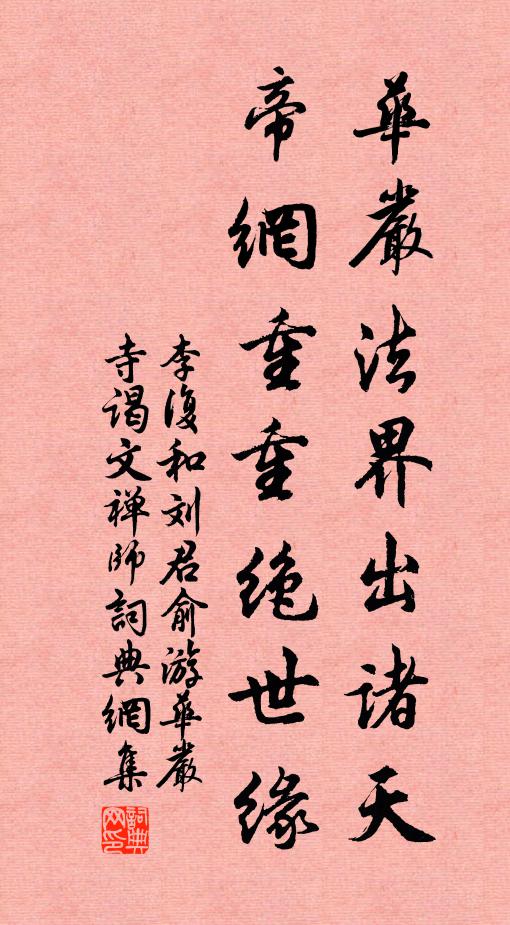 華嚴法界出諸天
帝網重重絶世緣
李復和刘君俞游華嚴
寺谒文禅師詞典網集
詞典
网印